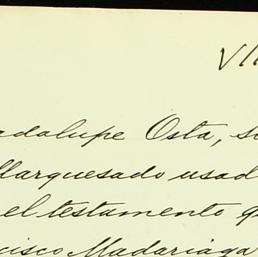 VII
adalupe Osta, su
Marquesado usad
el testamento q
cisco Madariaga